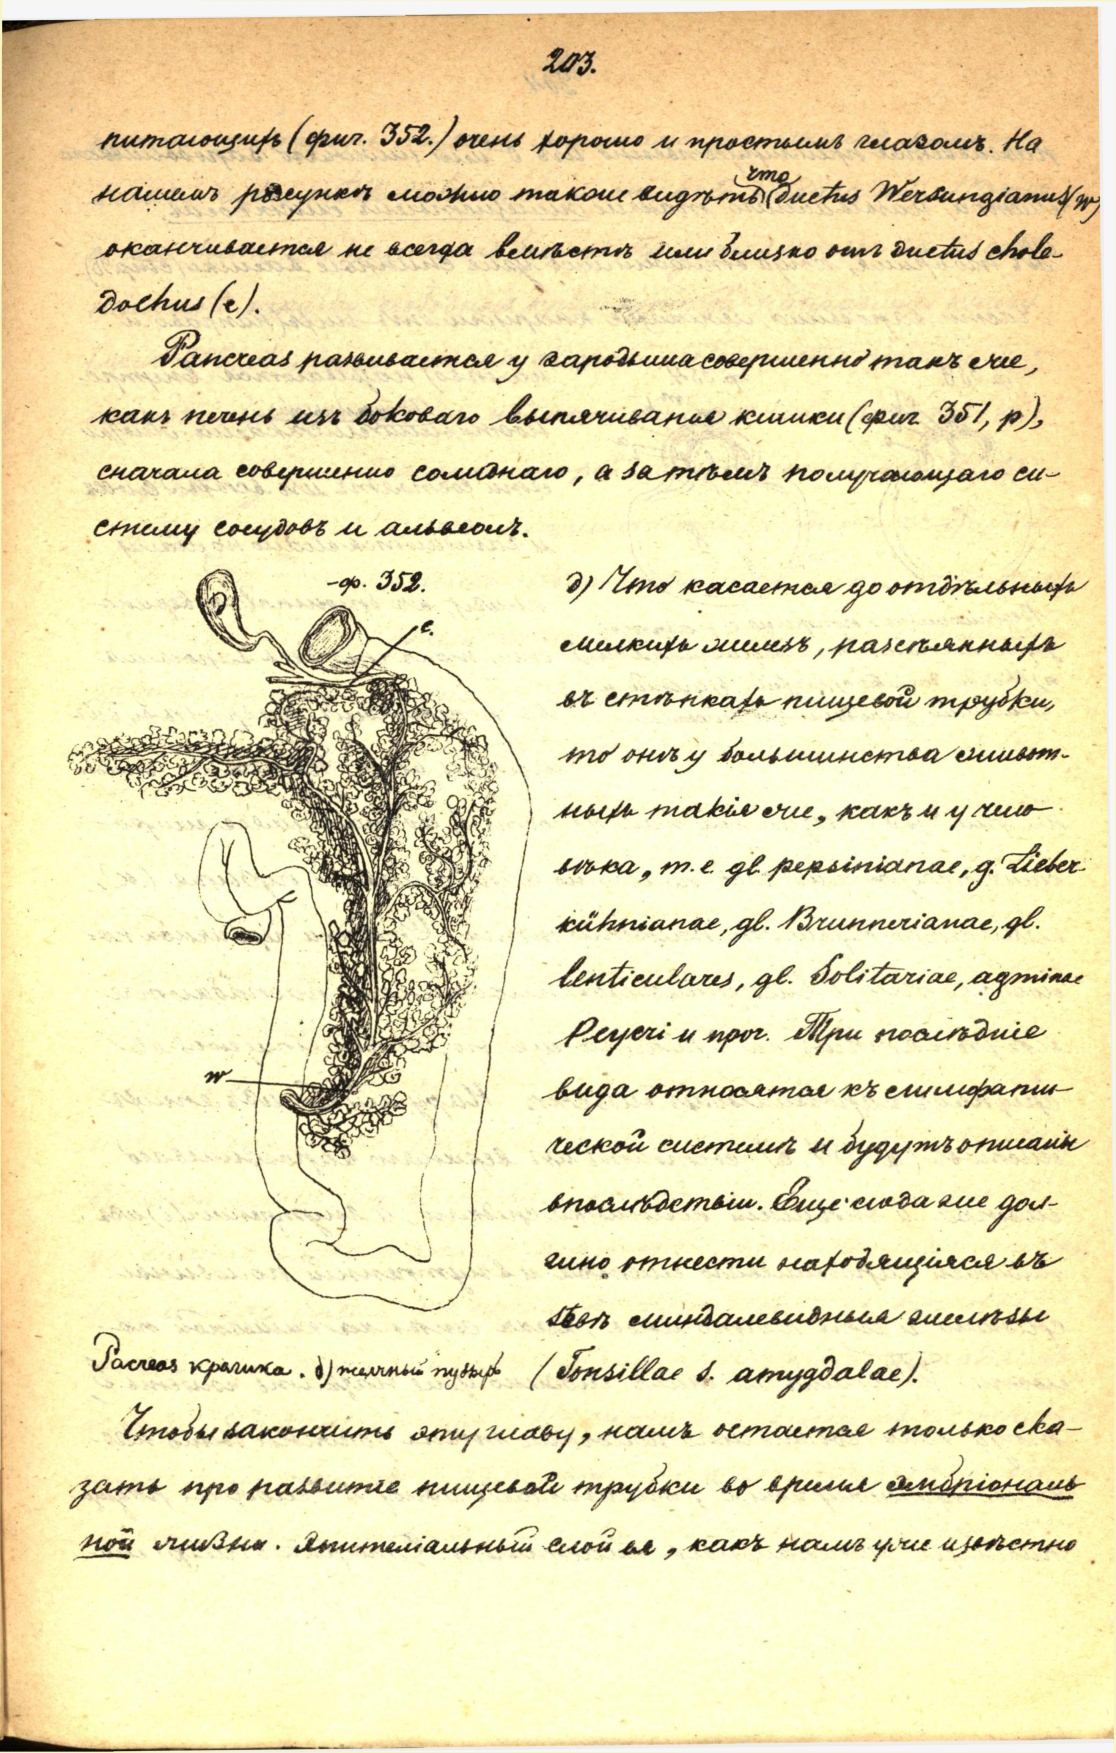 203.
питающихъ (фиг. 352.) очень хорошо и простымъ глазомъ. На
нашемъ рисункѣ можно также видѣть что (ductus Wersungianus (w)
оканчивается не всегда вмѣстѣ или близко отъ ductus chole-
dochus (e).
Pancreas развивается у зародыша совершенно такъ же,
какъ печень изъ боковаго выпячиванія кишки (фиг. 351, p),
сначала совершенно солиднаго, а затѣмъ получающаго си-
стему сосудовъ и альвеолъ.
-ф. 352.
e.
w
д) Что касается до отдѣльныхъ
мелкихъ железъ, разсѣянныхъ
въ стѣнкахъ пищевой трубки,
то онѣ у большинства живот-
ныхъ такія же, какъ и у чело
вѣка, т. е. gl. pepsinianae, g. Lieber
kühnianae, gl. Brunnerianae, gl.
lenticulares, gl. Solitariae, agminae
Peyeri и проч. Три послѣдніе
вида относятся къ лимфати
ческой системѣ и будутъ описаны
впослѣдствіи. Еще сюда же дол-
жно отнести находящіяся въ
зѣвѣ миндалевидныя железы
(Tonsillae s. amygdalae).
Pacreas кролика. д) желчный пузырь
Чтобы закончить эту главу, намъ остается только ска-
зать про развитіе пищевой трубки во время эмбріональ
ной жизни. Эпителіальный слой ея, какъ намъ уже извѣстно